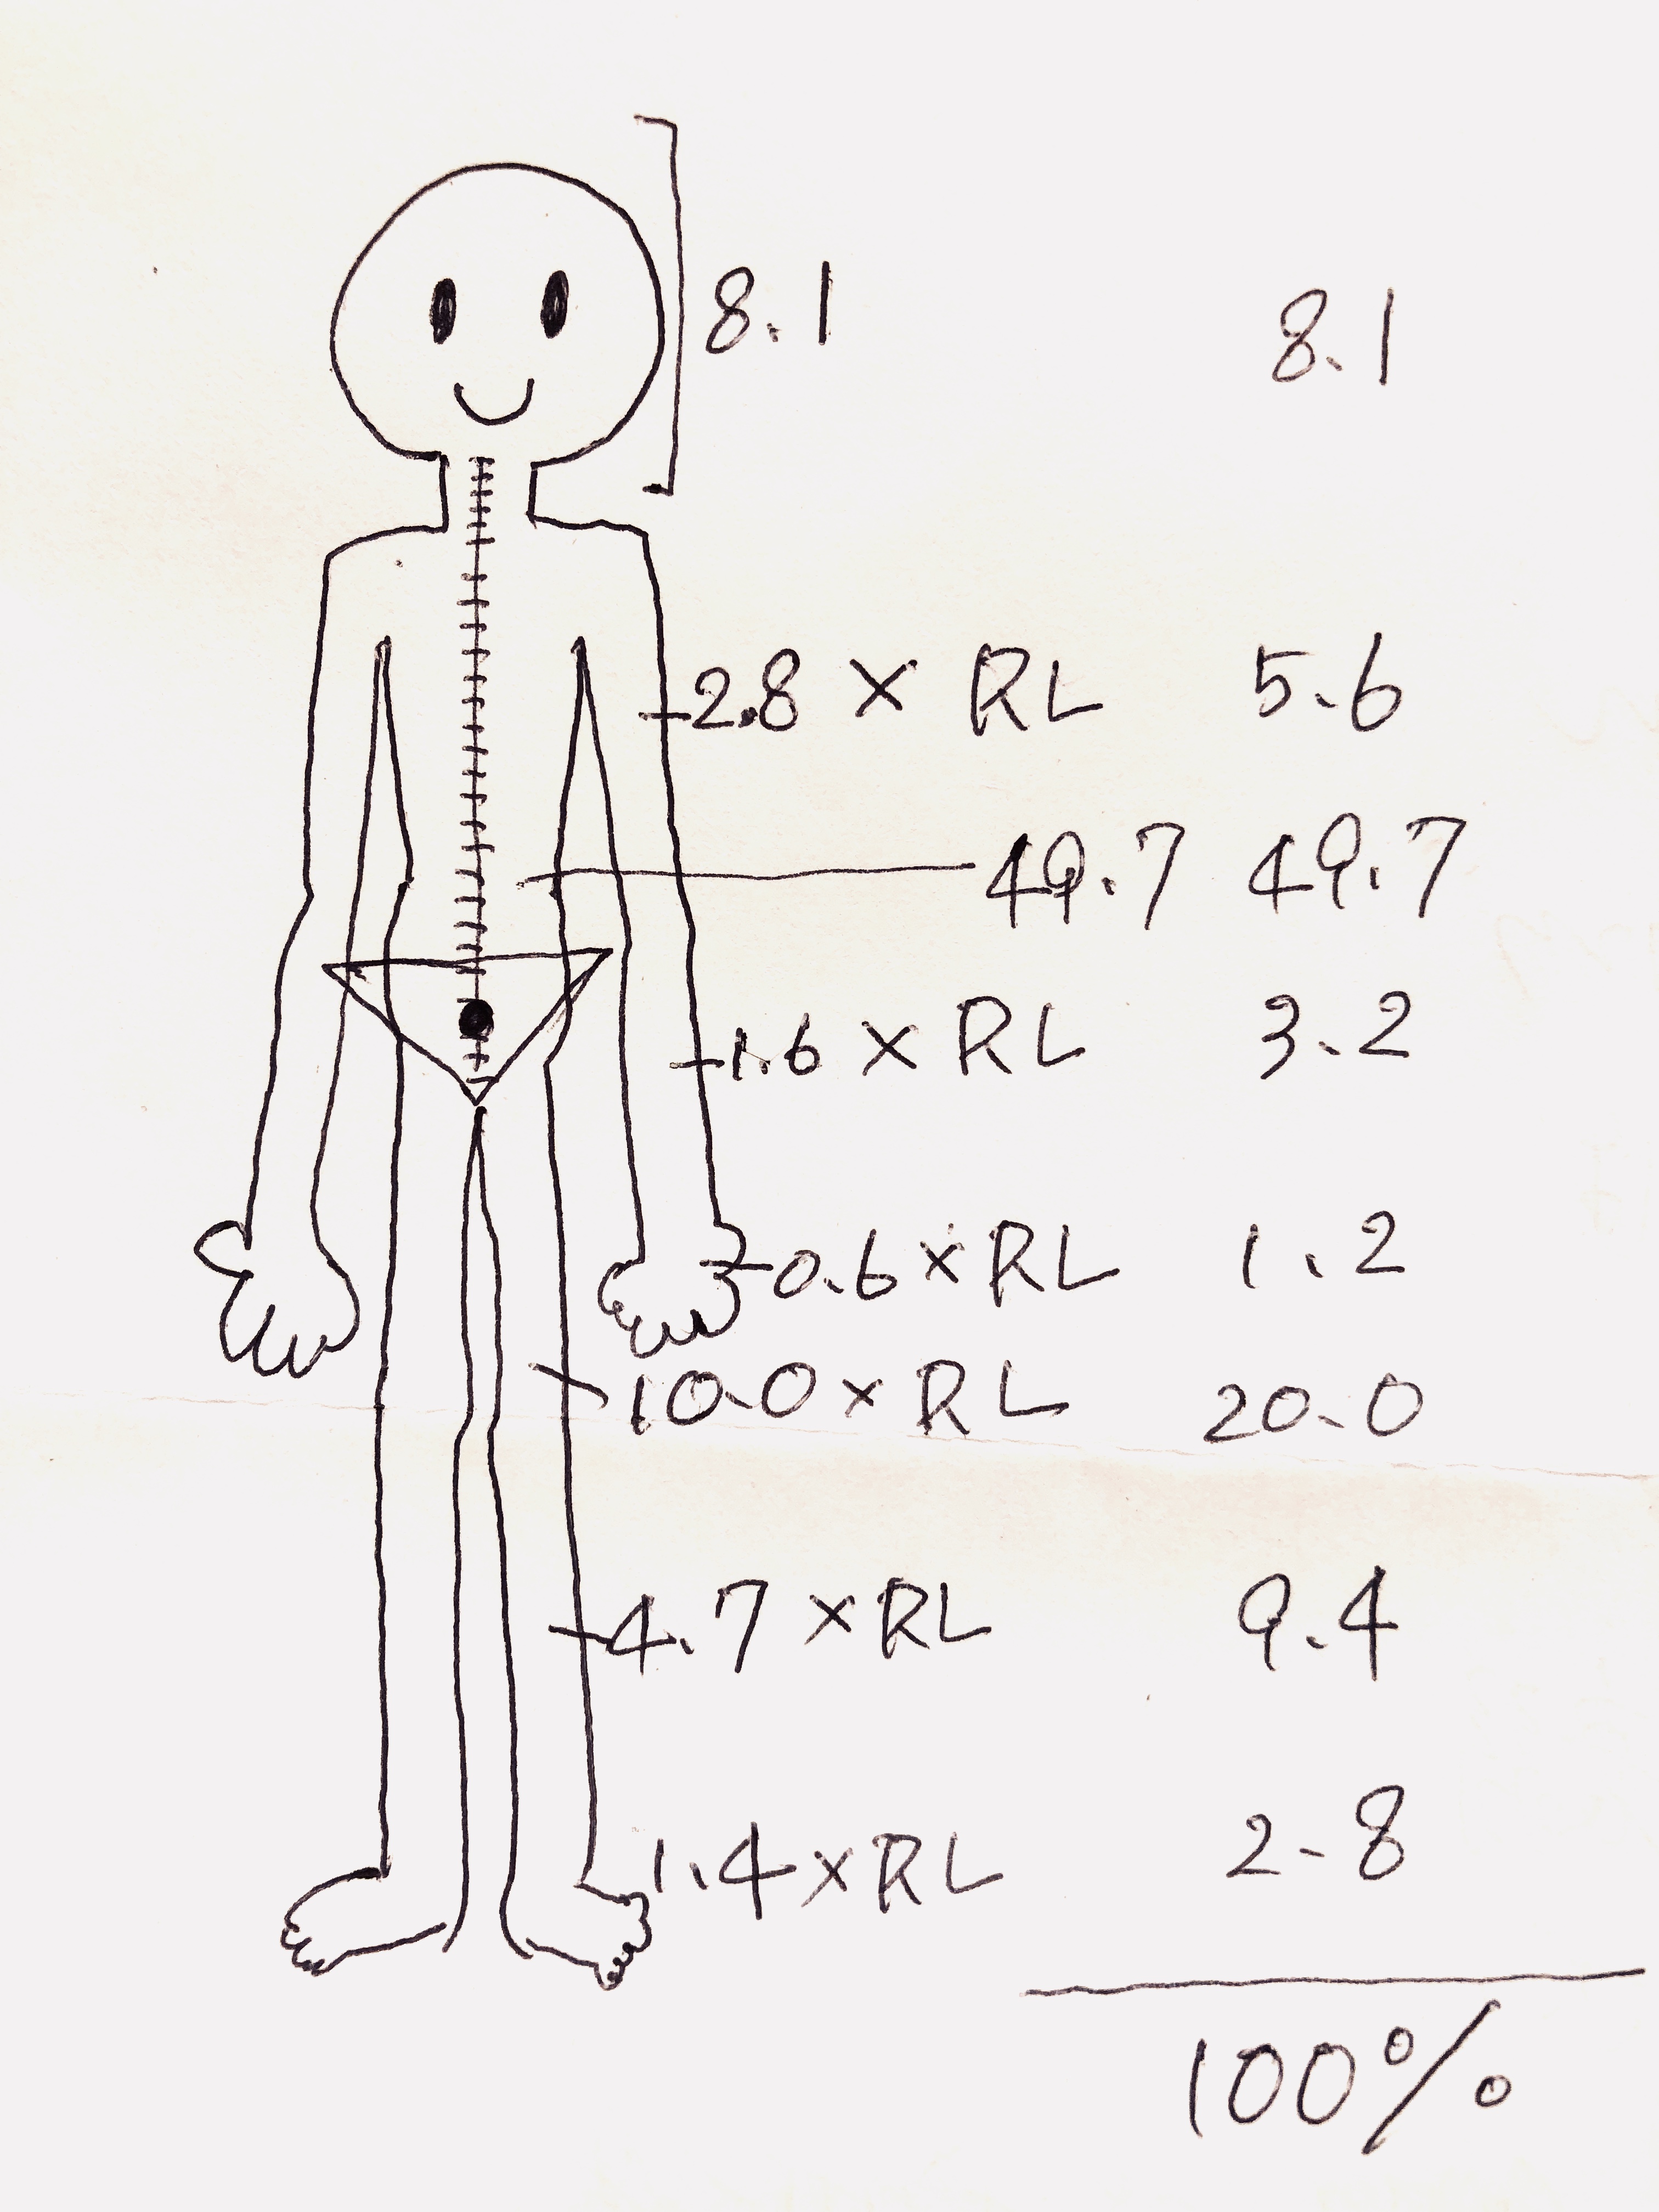 8.1 8.1
2.8 × RL 5.6
49.7 49.7
1.6 × RL 3.2
0.6 × RL 1.2
10.0 × RL 20.0
4.7 × RL 9.4
1.4 × RL 2.8
100%